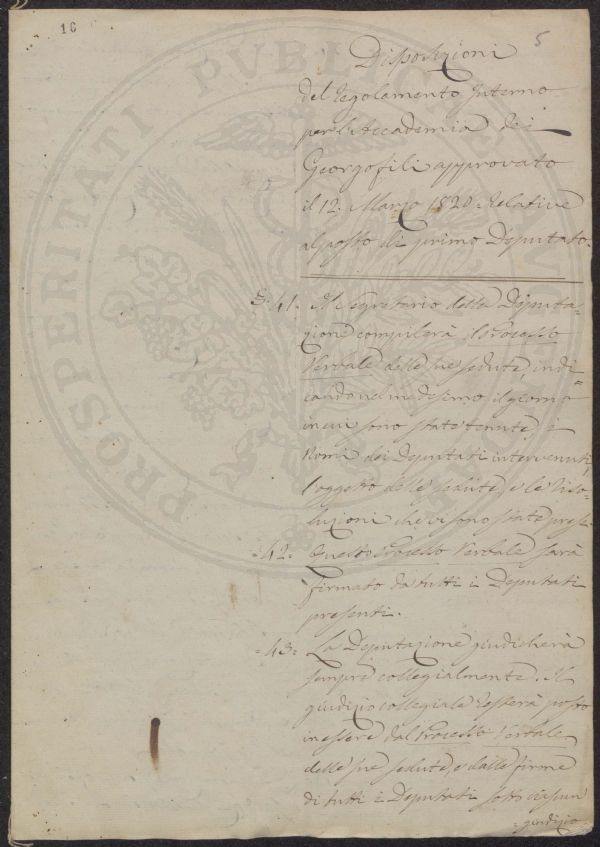 16
5
Disposizioni
del regolamento Interno
per l'Accademia dei
Georgofili approvato
il 12. Marzo 1820. Relative
al posto di primo Deputato.
§. 41. Il Segretario della Deputa=
zione compilerà il Processo
Verbale delle sue sedute, indi
cando nel medesimo il giorno
in cui sono state tenute, i
Nomi dei Deputati intervenuti
l'oggetto delle sedute, e le riso=
luzioni che vi sono state prese.
42. Questo Processo Verbale sarà
firmato da tutti i Deputati
presenti.
43. La Deputazione giudicherà
sempre collegialmente. Il
giudizio collegiale resterà posto
in essere dal Processo Verbale
delle sue sedute, e dalle firme
di tutti i Deputati sotto ciascun
=giudizio
PROSPERITATI PUBLICAE